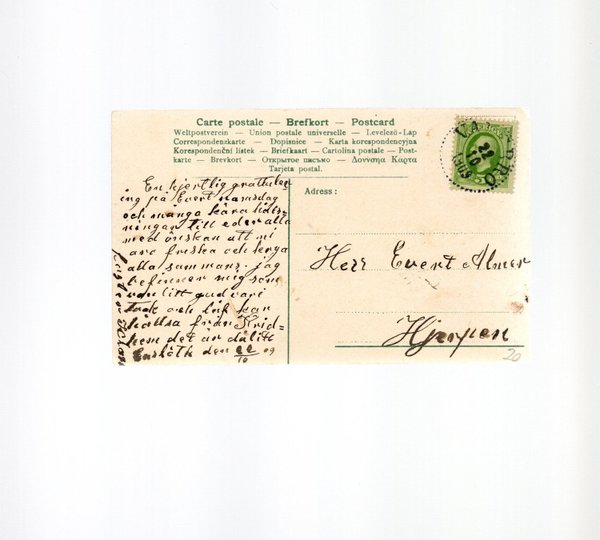 Carte postale — Brefkort — Postcard
Weltpostverein — Union postale universelle — Levelező-Lap
Correspondenzkarte — Dopisnice — Karta korespondencyjna
Korespondenční lístek — Briefkaart — Cartolina postale — Post-
karte — Brevkort — Открытое письмо — Δουνησα Κάρτα
Tarjeta postal.
En hjertlig gratuler
ing på Evert namsdag
och många kära häls
ningar till eder alla
med önskan att ni
äro friska och krya
alla samman; jag
befinner mig som
gud
Tack och lüf kan
hälsa från Frid-
hem det är dålitt
den 22/10 09
Adress :
Herr Evert Almer
Hjerpen
20
22
10